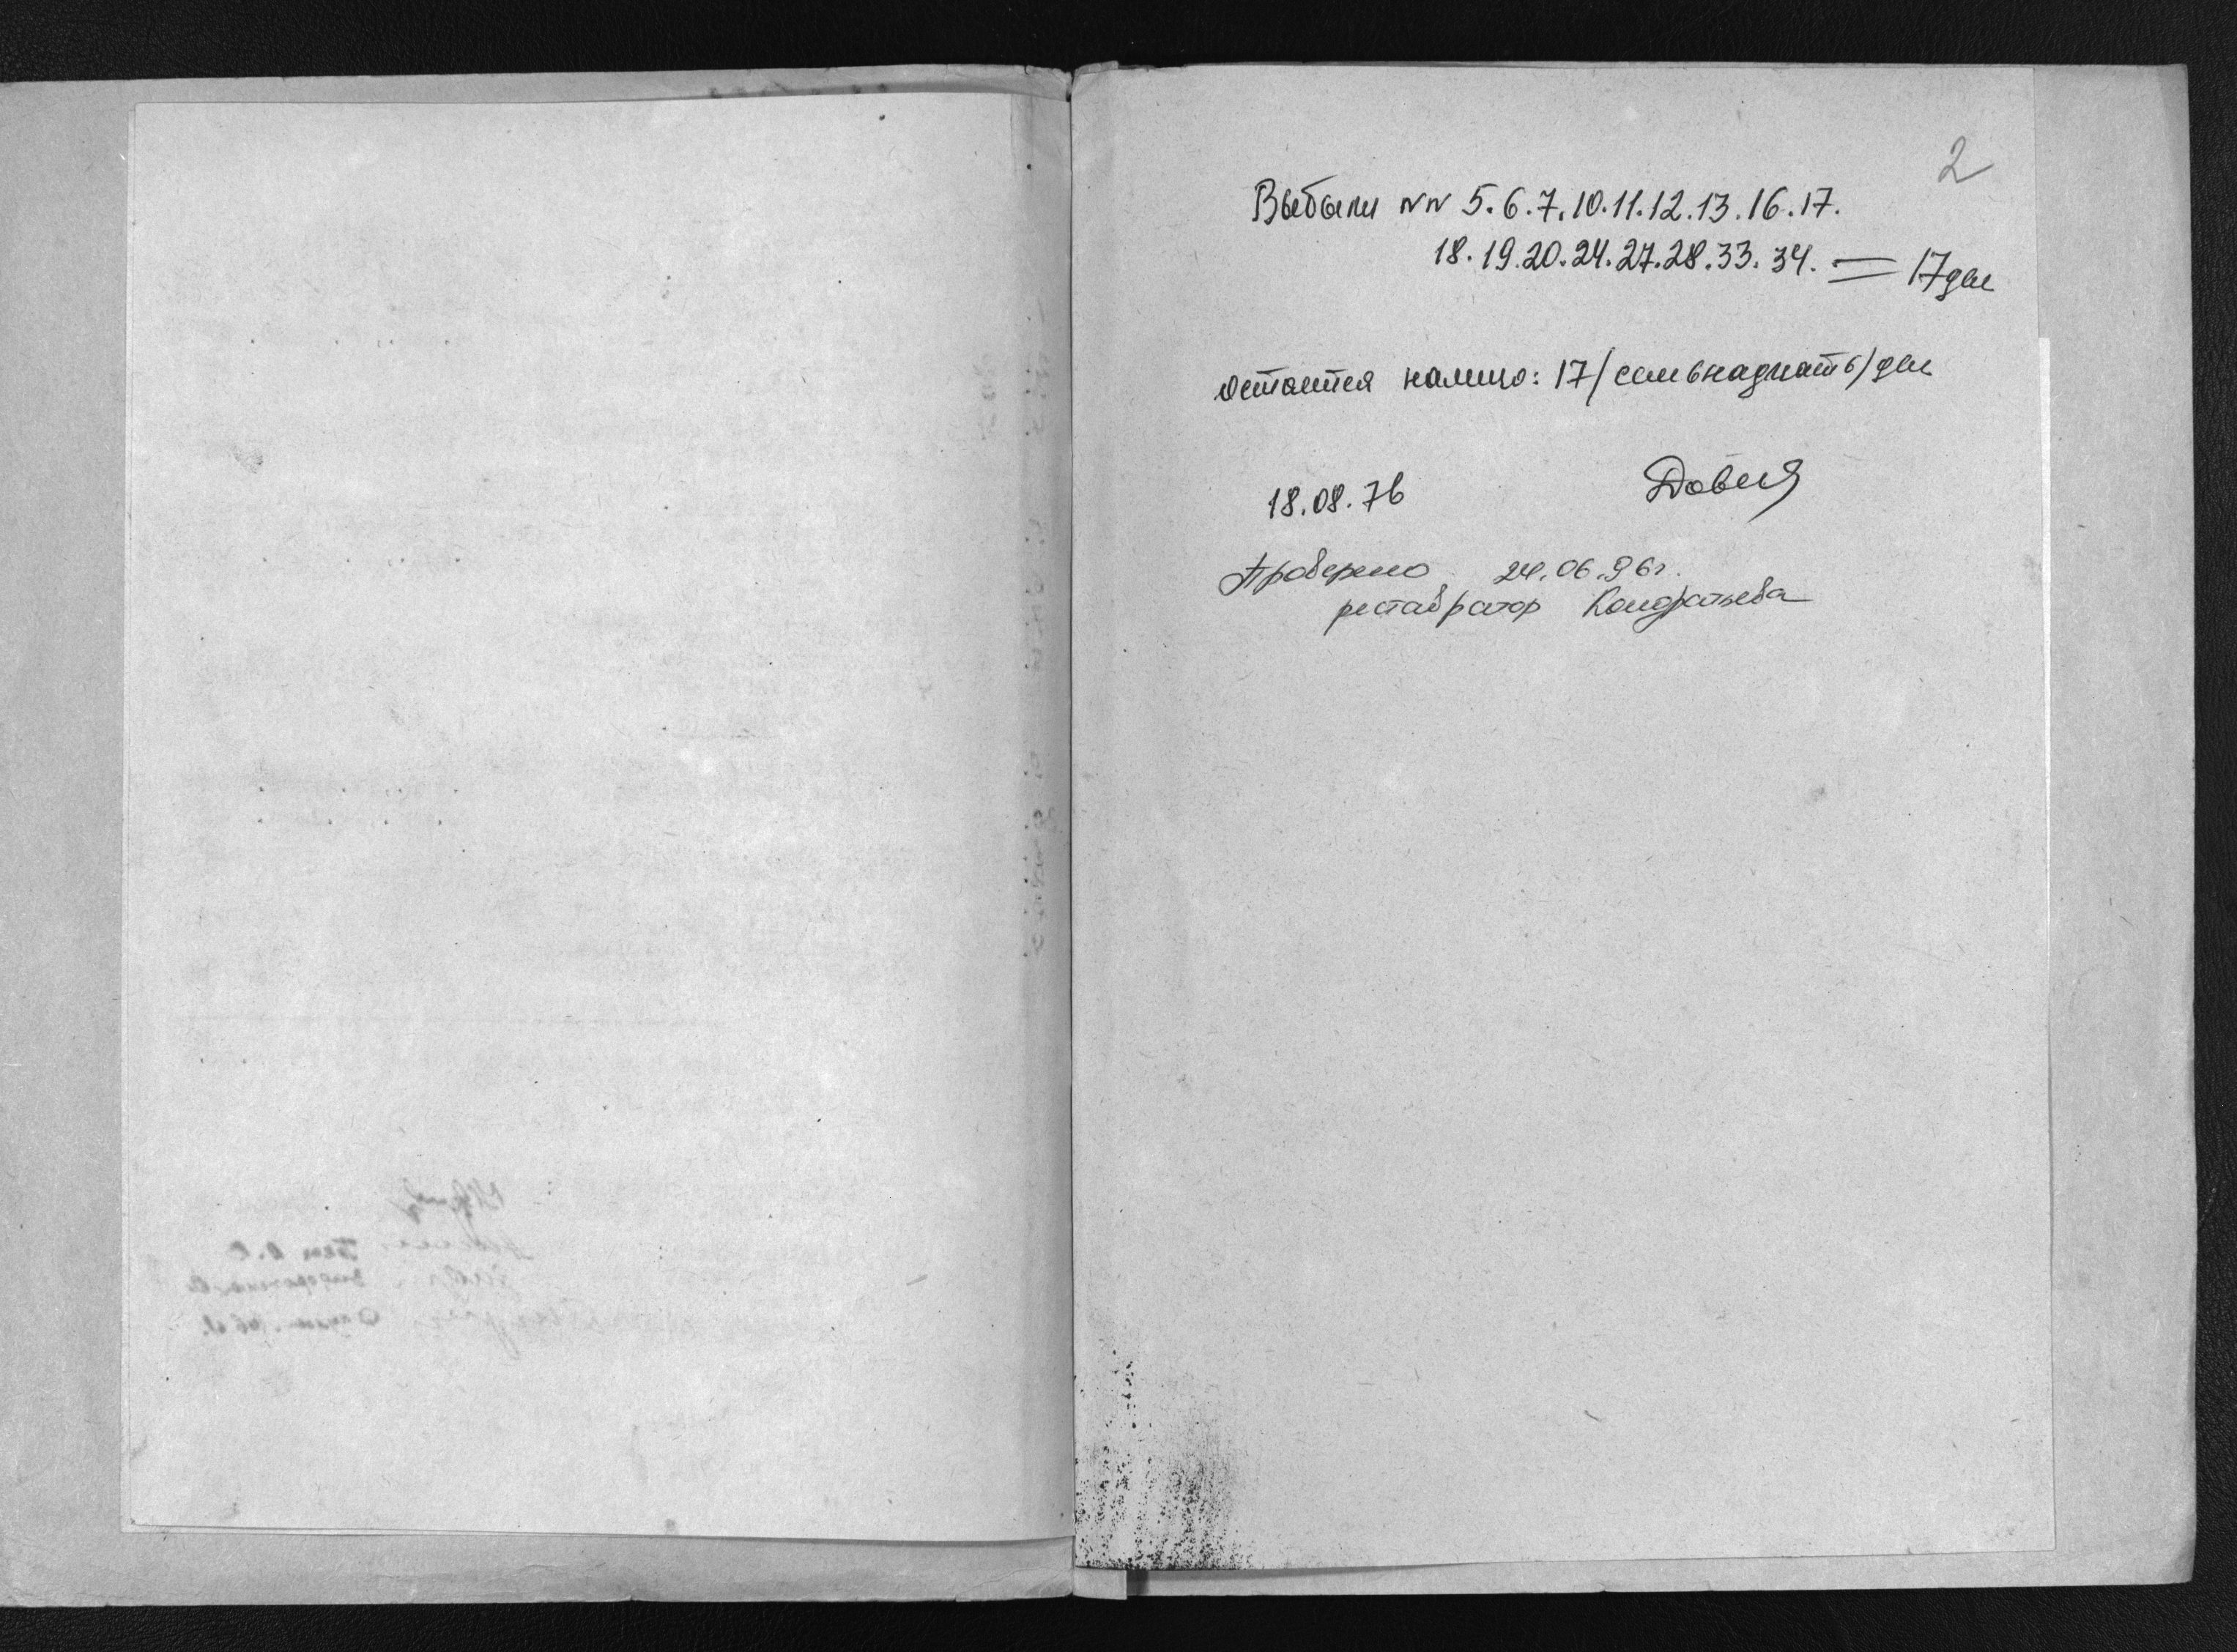 2
Выбыли NN 5.6.7.10.11.12.13.16.17.
18.19.20.24.27.28.33.34. = 17 дел
остается налицо: 17/семьнадцать/дел
18.08.76
Проверено 24.06.96г.
реставратор Кондратьева